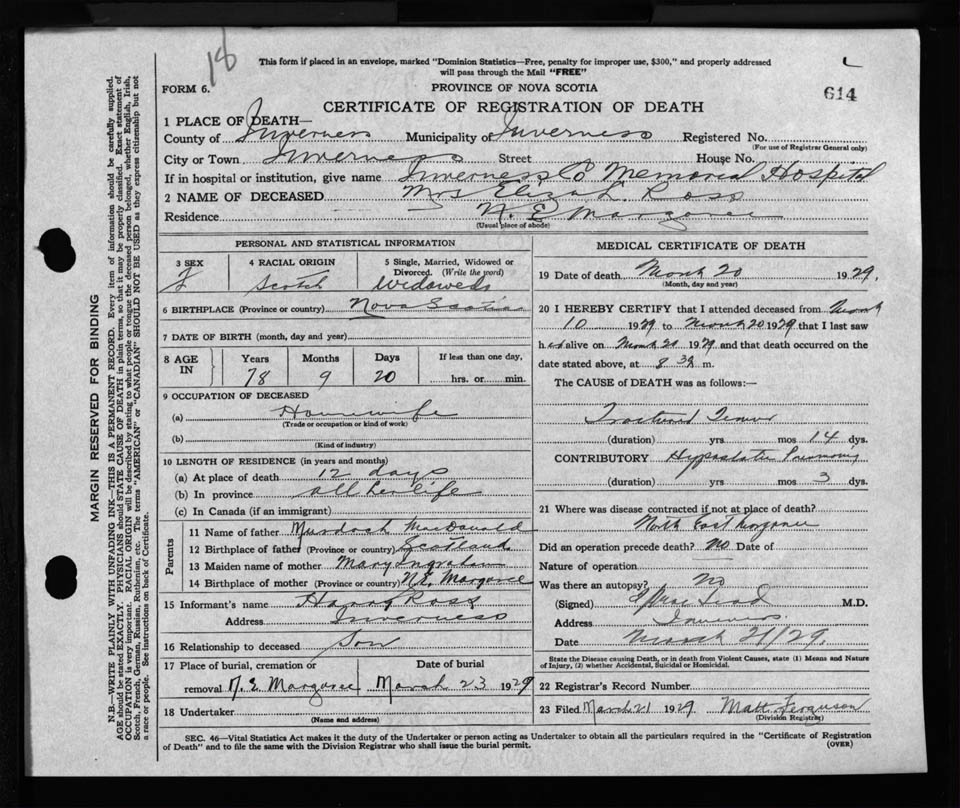 18
This form if placed in an envelope, marked "Dominion Statistics—Free, penalty for improper use, $300," and properly addressed
will pass through the Mail "FREE"
FORM 6.
PROVINCE OF NOVA SCOTIA
614
CERTIFICATE OF REGISTRATION OF DEATH
1 PLACE OF DEATH—
County of Inverness Municipality of Inverness Registered No.
(For use of Registrar General only)
City or Town Inverness Street House No.
If in hospital or institution, give name Inverness Co Memorial Hospital
2 NAME OF DECEASED Mrs Eliza L. Ross
Residence N. E. Margaree
(Usual place of abode)
PERSONAL AND STATISTICAL INFORMATION
3 SEX 4 RACIAL ORIGIN 5 Single, Married, Widowed or
Divorced. (Write the word)
F Scotch Widowed
6 BIRTHPLACE (Province or country) Nova Scotia
7 DATE OF BIRTH (month, day and year)
8 AGE IN Years Months Days If less than one day,
78 9 20 hrs. or min.
9 OCCUPATION OF DECEASED
(a) Housewife
(Trade or occupation or kind of work)
(b)
(Kind of industry)
10 LENGTH OF RESIDENCE (in years and months)
(a) At place of death 12 days
(b) In province all her life
(c) In Canada (if an immigrant)
Parents
11 Name of father Murdoch MacDonald
12 Birthplace of father (Province or country) Scotland
13 Maiden name of mother Mary Ingraham
14 Birthplace of mother (Province or country) N.E. Margaree
15 Informant's name Ross
Address Inverness
16 Relationship to deceased Son
17 Place of burial, cremation or Date of burial
removal N. E. Margaree March 23 1929
18 Undertaker
(Name and address)
MEDICAL CERTIFICATE OF DEATH
19 Date of death March 20 1929.
(Month, day and year)
20 I HEREBY CERTIFY that I attended deceased from March
10 1929 to March 20 1929 that I last saw
h er alive on March 20 1929 and that death occurred on the
date stated above, at 8 30 m.
The CAUSE of DEATH was as follows:—
Fractured Femur
(duration) yrs mos 14 dys.
CONTRIBUTORY Hypostatic Pneumonia
(duration) yrs mos 3 dys.
21 Where was disease contracted if not at place of death?
North East Margaree
Did an operation precede death? No Date of
Nature of operation
Was there an autopsy? No
(Signed) M.D.
Address Inverness
Date March 21/29.
State the Disease causing Death, or in death from Violent Causes, state (1) Means and Nature
of Injury, (2) whether Accidental, Suicidal or Homicidal.
22 Registrar's Record Number
23 Filed March 21 1929 Matt Ferguson
(Division Registrar)
SEC. 46—Vital Statistics Act makes it the duty of the Undertaker or person acting as Undertaker to obtain all the particulars required in the "Certificate of Registration
of Death" and to file the same with the Division Registrar who shall issue the burial permit.
(OVER)
MARGIN RESERVED FOR BINDING
N.B.—WRITE PLAINLY WITH UNFADING INK—THIS IS A PERMANENT RECORD. Every item of information should be carefully supplied.
AGE should be stated EXACTLY. PHYSICIANS should STATE CAUSE OF DEATH in plain terms, so that it may be properly classified. Exact statement of
OCCUPATION is very important. RACIAL ORIGIN will be described by stating to what people or tongue the deceased person belonged, whether English, Irish,
Scotch, French, German, Russian, Ruthenian, etc. The terms "AMERICAN" or "CANADIAN" SHOULD NOT BE USED as they express citizenship but not
a race or people. See instructions on back of Certificate.